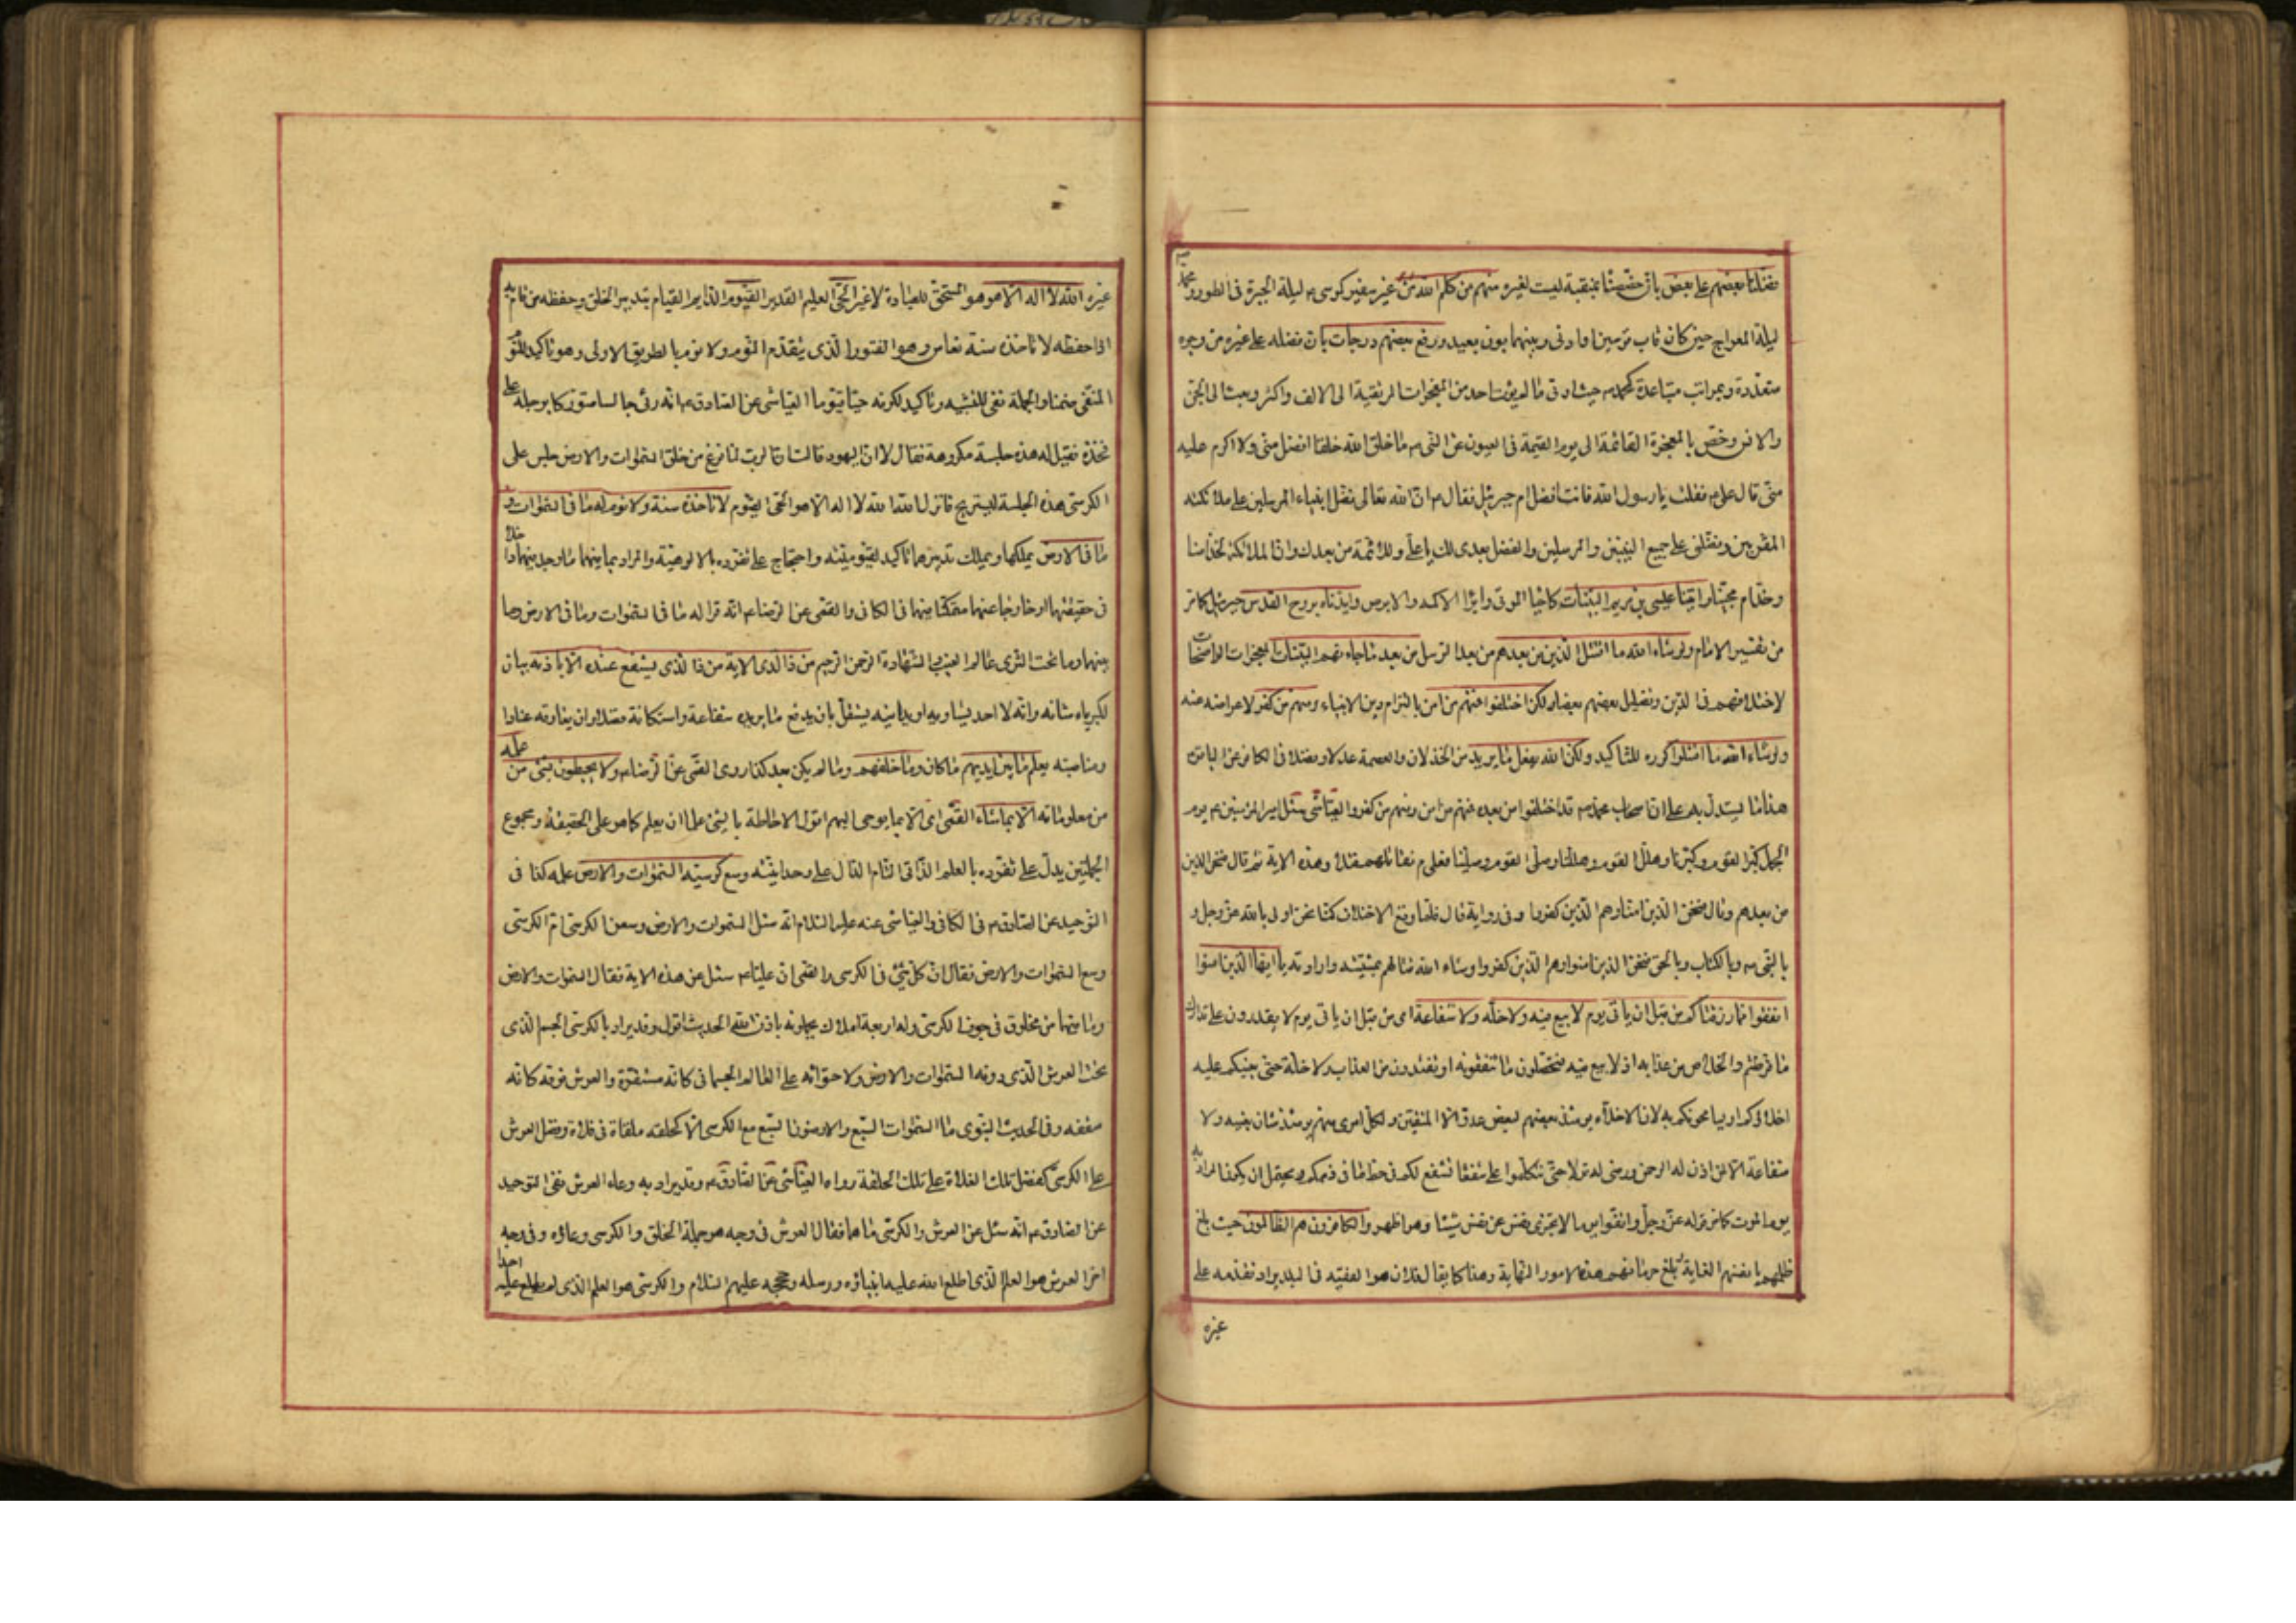 فضلنا بعضهم على بعض بان خصصنا بمنقبة ليست لغيره منهم من كلم الله من غير سفير كموسى ع ليلة الحيرة فى الطور ومحمد ص
ليلة المعراج حين كان قاب قوسين او ادنى وبينهما بون بعيد ورفع بعضهم درجات بان فضله على غيره من وجوه
متعددة وبمراتب متباعدة كمحمد ص حيث اوتى ما لم يؤت احد من المعجزات المرتقية الى الالف واكثر وبعث الى الجن
والانس وخص بالمعجزة القائمة الى يوم القيمة فى العيون عن النبى ص ما خلق الله خلقا افضل منى ولا اكرم عليه
منى قال على ع فقلت يا رسول الله فانت افضل ام جبرئيل فقال ص ان الله تعالى فضل انبياء المرسلين على ملائكته
المقربين وفضلنى على جميع النبيين والمرسلين والفضل بعدى لك يا على وللائمة من بعدك وان الملائكة لخدامنا
وخدام محبينا واتينا عيسى بن مريم البينات كاحياء الموتى وابراء الاكمه والابرص وايدناه بروح القدس جبرئيل كما مر
من تفسير الامام ولو شاء الله ما اقتتل الذين من بعدهم من بعد الرسل من بعد ما جاءتهم البينات المعجزات الواضحات
لاختلافهم فى الدين وتضليل بعضهم بعضا ولكن اختلفوا فمنهم من امن بالتزام دين الانبياء ومنهم من كفر لاعراضه عنه
ولو شاء الله ما اقتتلوا كرره للتاكيد ولكن الله يفعل ما يريد من الخذلان والعصمة عدلا وفضلا فى الكافى عن الباقر ع
هذا ما يستدل به على ان اصحاب محمد ص قد اختلفوا من بعده فمنهم من امن ومنهم من كفر والعياشى سئل امير المؤمنين ع يوم
الجمل كبر القوم وكبرنا وهلل القوم وهللنا وصلى القوم وصلينا فعلى م نقاتلهم فتلا ع هذه الاية ثم قال نحن الذين
من بعدهم وقال فنحن الذين امنا وهم الذين كفروا وفى رواية قال فلما وقع الاختلاف كنا نحن اولى بالله عز وجل و
بالنبى ص وبالكتاب وبالحق فنحن الذين امنوا وهم الذين كفروا وشاء الله قتالهم بمشيته وارادته يا ايها الذين امنوا
انفقوا مما رزقناكم من قبل ان ياتى يوم لا بيع فيه ولا خلة ولا شفاعة اى من قبل ان ياتى يوم لا يقدرون على تدارك
ما فرطتم والخلاص من عذابه اذ لا بيع فيه فتحصلون ما تنفقونه او تفتدون من العذاب ولا خلة حتى يعينكم عليه
اخلاؤكم او يسامحونكم به لان الاخلاء يومئذ بعضهم لبعض عدو الا المتقين ولكل امرى منهم يومئذ شان يغنيه ولا
شفاعة الا لمن اذن له الرحمن ورضى له قولا حتى تتكلموا على شفعا تشفع لكم فى حط ما فى ذممكم ويحتمل ان يكون المراد به
يوم الموت كما فى قوله عز وجل واتقوا يوما لا تجزى نفس عن نفس شيئا وهو اظهر والكافرون هم الظالمون حيث بلغ
ظلمهم بانفسهم الغاية وبلغ حرمانهم هذه الامور النهاية وهذا كما يقال فلان هو الفقيه فى البلد يراد تقدمه على
غيره
غيره الله لا اله الا هو هو المستحق للعبادة لا غير الحى العليم القدير القيوم الدايم القيام بتدبير الخلق وحفظه من قام به
اذا حفظه لا تاخذه سنة نعاس وهو الفتور الذى يتقدم النوم ولا نوم بالطريق الاولى وهو تاكيد للنوم
المنفى ضمنا والجملة نفى للتشبيه وتاكيد لكونه حيا قيوما العياشى عن الصادق ع انه رئى جالسا متوركا برجله على
فخذه فقيل له هذه جلسة مكروهة فقال لا ان اليهود قالت ان الرب لما فرغ من خلق السموات والارض جلس على
الكرسى هذه الجلسة ليستريح فانزل الله الله لا اله الا هو الحى القيوم لا تاخذه سنة ولا نوم له ما فى السموات و
ما فى الارض يملكها ويملك تدبيرها تاكيد لقيوميته واحتجاج على تفرده بالالوهية والمراد بما فيهما ما وجد فيهما داخلا
فى حقيقتهما او خارجا عنهما متمكنا فيهما فى الكافى والقمى عن الرضا ع انه قرا له ما فى السموات وما فى الارض وما
بينهما وما تحت الثرى عالم الغيب والشهادة الرحمن الرحيم من ذا الذى الاية من ذا الذى يشفع عنده الا باذنه بيان
لكبرياء شانه وانه لا احد يساويه او يدانيه يستقل بان يدفع ما يريده شفاعة واستكانة فضلا ان يعاوقه عنادا
ومناصبة يعلم ما بين ايديهم ما كان وما خلفهم وما لم يكن بعد كذا روى القمى عن الرضا ع ولا يحيطون بشئ من علمه
من معلوماته الا بما شاء القمى اى الا بما يوحى اليهم اقول الاحاطة بالشئ علما ان يعلم كما هو على الحقيقة ومجموع
الجملتين يدل على تفرده بالعلم الذاتى التام الدال على وحدانيته وسع كرسيه السموات والارض علمه كذا فى
التوحيد عن الصادق ع فى الكافى والعياشى عنه عليه السلام انه سئل السموات والارض وسعن الكرسى ام الكرسى
وسع السموات والارض فقال ان كل شئ فى الكرسى والقمى ان عليا ع سئل عن هذه الاية فقال السموات والارض
وما فيهما من مخلوق فى جوف الكرسى وله اربعة املاك يحملونه باذن الله الحديث اقول وقد يراد بالكرسى الجسم الذى
تحت العرش الذى دونه السموات والارض ولاحتوائه على العالم الجسمانى كانه مستقره والعرش فوقه كانه
سقفه وفى الحديث النبوى ما السموات السبع والارضون السبع مع الكرسى الا كحلقة ملقاة فى فلاة وفضل العرش
على الكرسى كفضل تلك الفلاة على تلك الحلقة رواه العياشى عن الصادق ع وقد يراد به وعاء العرش ففى التوحيد
عن الصادق ع انه سئل عن العرش والكرسى ما هما فقال العرش فى وجه هو جملة الخلق والكرسى وعاؤه وفى وجه
اخر العرش هو العلم الذى اطلع الله عليه انبيائه ورسله وحججه عليهم السلام والكرسى هو العلم الذى لم يطلع عليه احدا